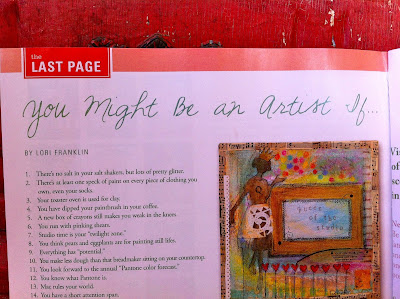 the
LAST PAGE
You Might Be an Artist If...
BY LORI FRANKLIN
1. There's no salt in your salt shakers, but lots of pretty glitter.
2. There's at least one speck of paint on every piece of clothing you
own, even your socks.
3. Your toaster oven is used for clay.
4. You have dipped your paintbrush in your coffee.
5. A new box of crayons still makes you weak in the knees.
6. You run with pinking shears.
7. Studio time is your "twilight zone."
8. You think pears and eggplants are for painting still lifes.
9. Everything has "potential."
10. You make less dough than that breadmaker sitting on your countertop.
11. You look forward to the annual "Pantone color forecast."
12. You know what Pantone is.
13. Mac rules your world.
14. You have a short attention span.
queen
of the
studio